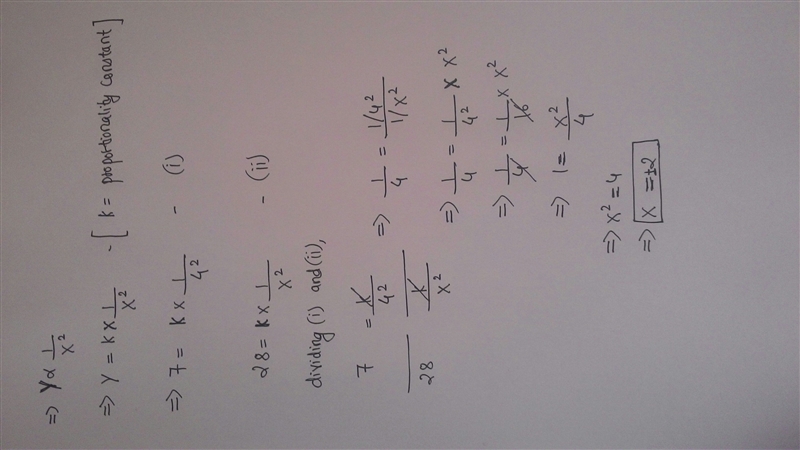 => Y ∝ 1/x²
=> Y = K × 1/x² - [K = proportionality constant]
=> 7 = K × 1/4² - (i)
28 = K × 1/x² - (ii)
dividing (i) and (ii),
7/28 = (K/4²)/(K/x²)
=> 1/4 = (1/4²)/(1/x²)
=> 1/4 = 1/4² × x²
=> 1/4 = 1/16 × x²
=> 1 = x²/4
=> x² = 4
=> x = ±2